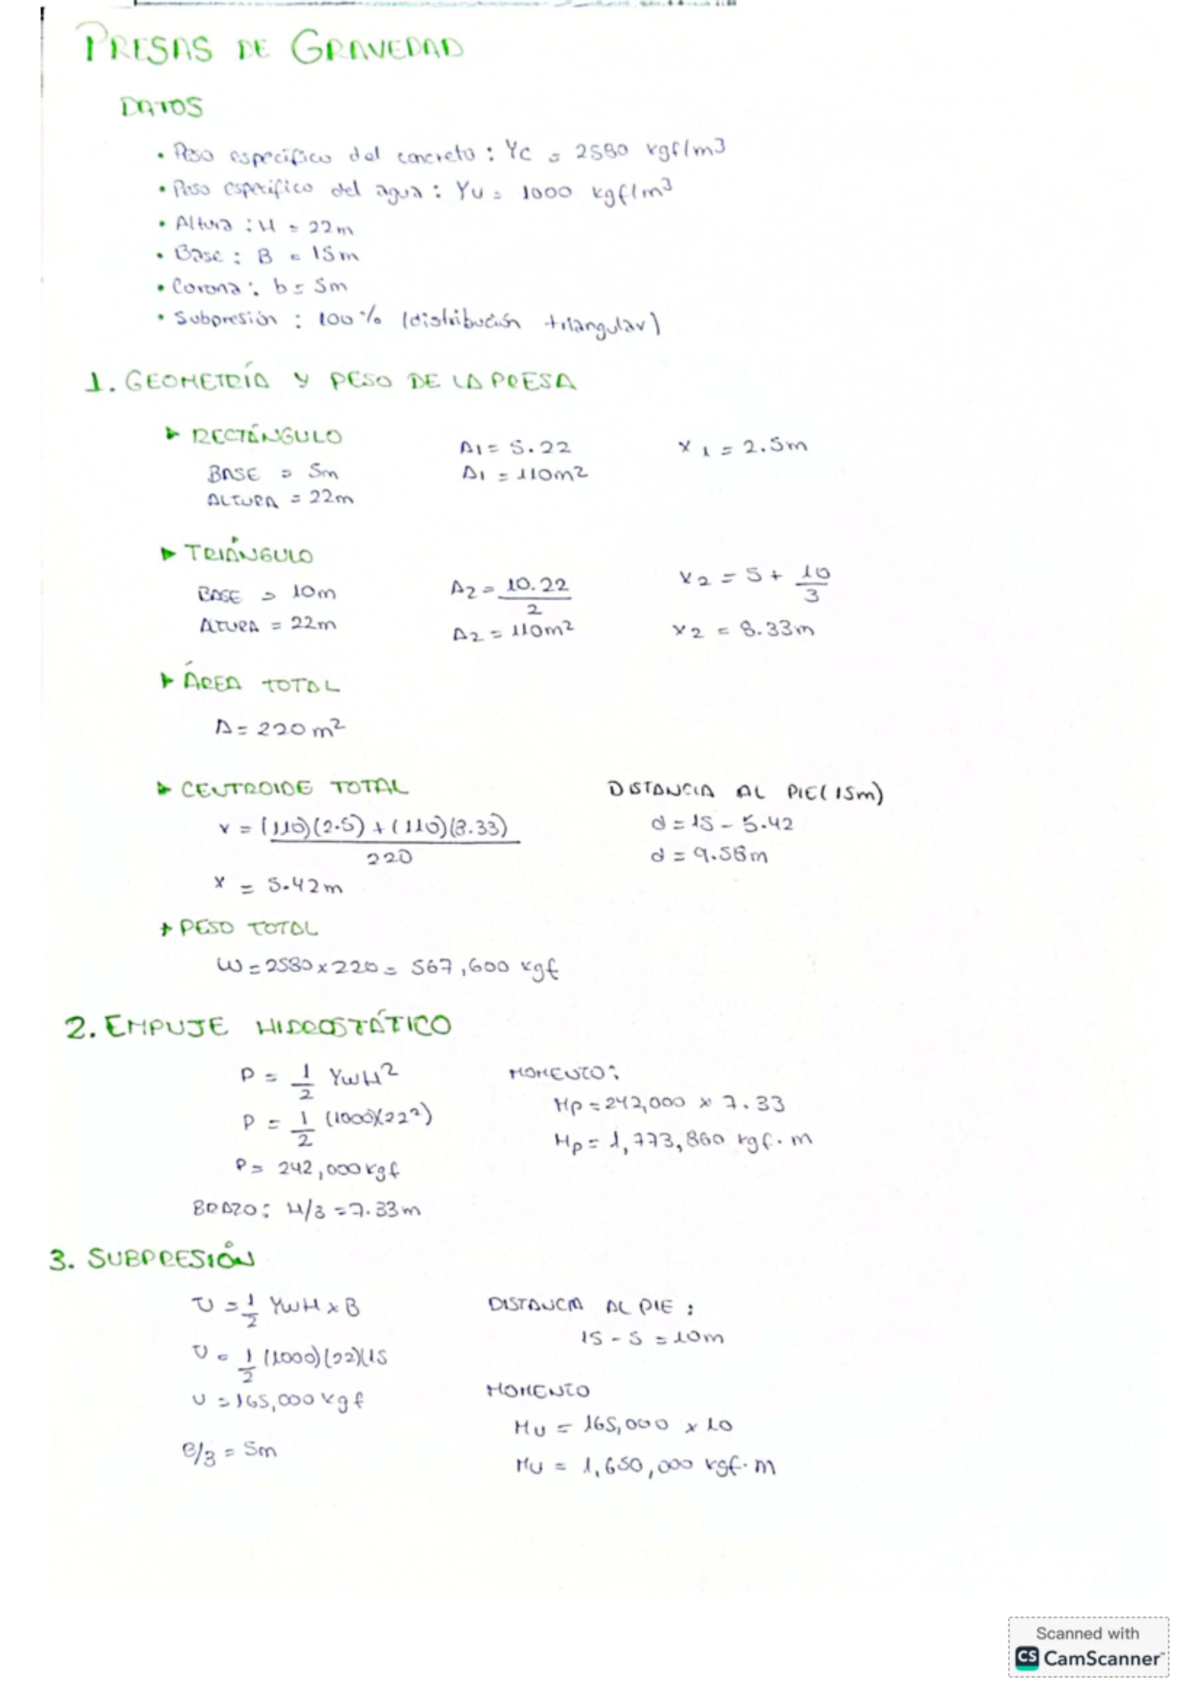 PRESAS DE GRAVEDAD
DATOS
• Peso específico del concreto : γc = 2580 kgf/m³
• Peso específico del agua : γu = 1000 kgf/m³
• Altura : H = 22m
• Base : B = 15m
• Corona : b = 5m
• Subpresión : 100% (distribución triangular)
1. GEOMETRÍA Y PESO DE LA PRESA
► RECTÁNGULO
BASE = 5m
ALTURA = 22m
A1 = 5.22
A1 = 110m2
x1 = 2.5m
► TRIÁNGULO
BASE = 10m
ALTURA = 22m
A2 = 10.22/2
A2 = 110m2
x2 = 5 + 10/3
x2 = 8.33m
► ÁREA TOTAL
A = 220 m2
► CENTROIDE TOTAL
x = (110)(2.5) + (110)(8.33)
220
x = 5.42m
DISTANCIA AL PIE (15m)
d = 15 - 5.42
d = 9.58m
→ PESO TOTAL
W = 2580 x 220 = 567,600 kgf
2. EMPUJE HIDROSTÁTICO
P = 1/2 γwH²
P = 1/2 (1000)(22²)
P = 242,000 kgf
BRAZO: H/3 = 7.33m
MOMENTO:
Mp = 242,000 x 7.33
Mp = 1,773,860 kgf.m
3. SUBPRESIÓN
U = 1/2 γwH x B
U = 1/2 (1000)(22)(15
U = 165,000 kgf
B/3 = 5m
DISTANCIA AL PIE :
15 - 5 = 10m
MOMENTO
Mu = 165,000 x 10
Mu = 1,650,000 kgf.m
Scanned with
CS CamScanner